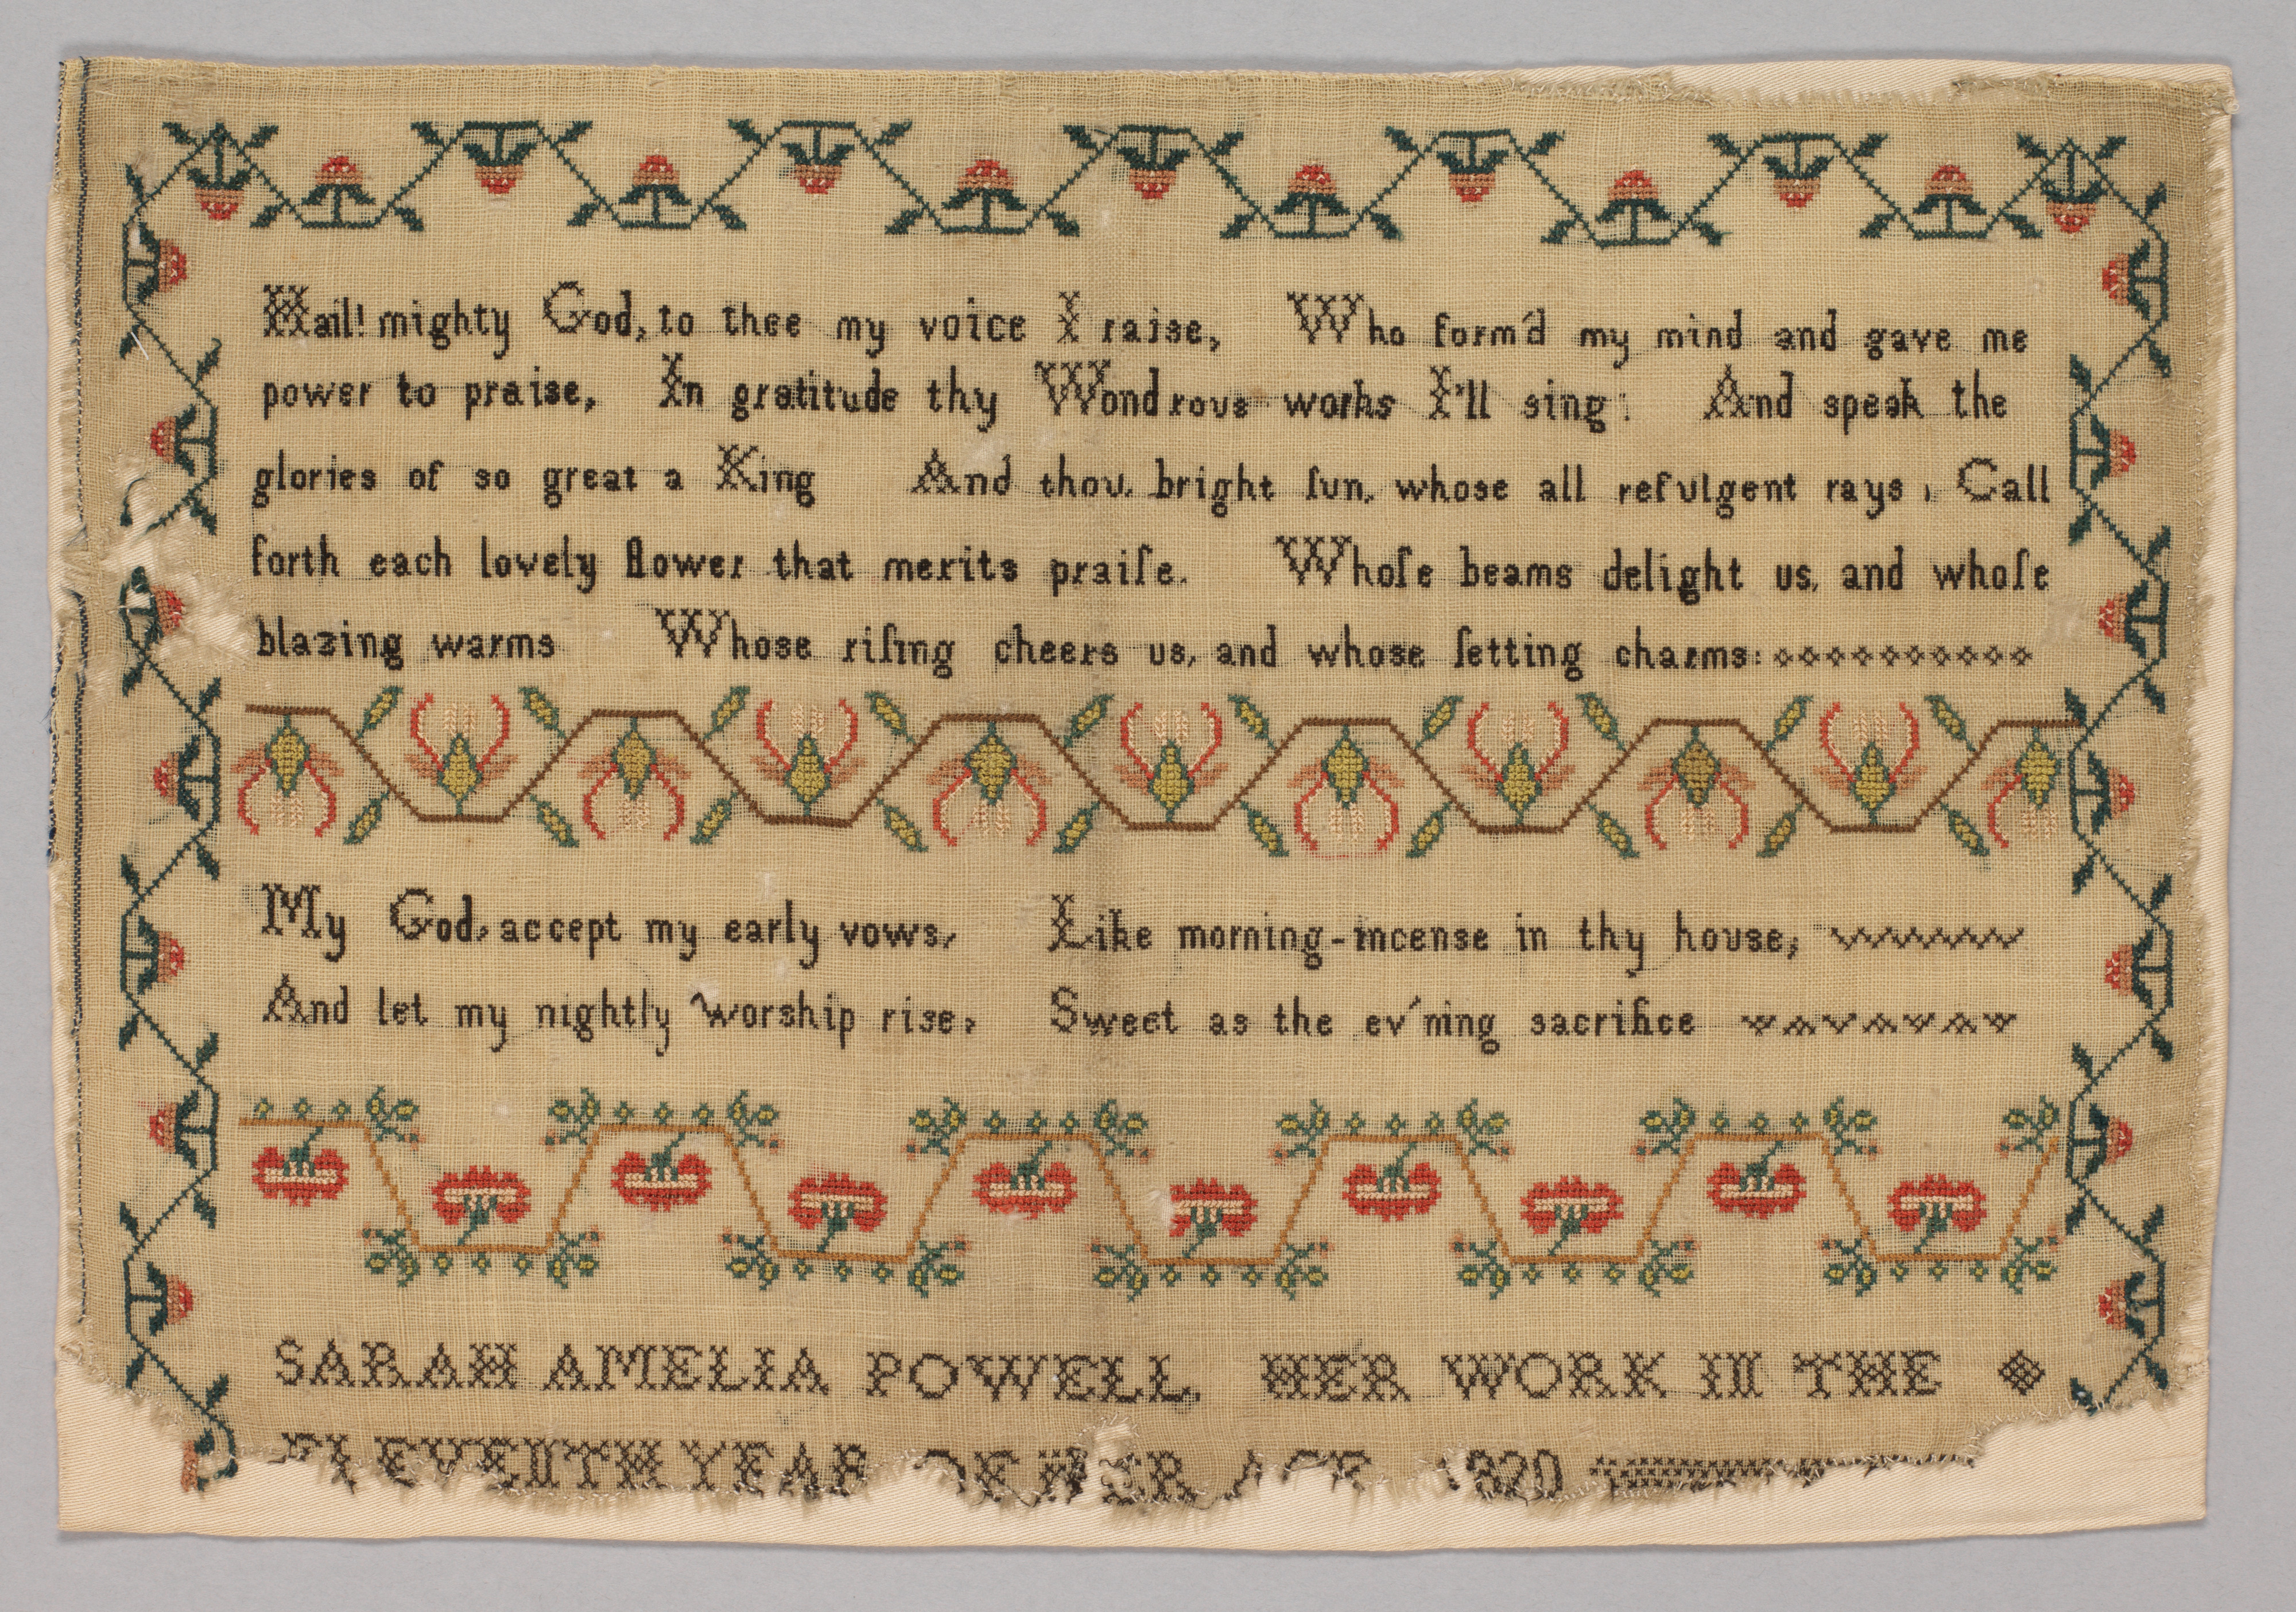 Hail! mighty God, to thee my voice I raise, Who form'd my mind and gave me
power to praise, In gratitude thy Wondrous works I'll sing: And speak the
glories of so great a King And thou, bright ſun, whose all refulgent rays, Call
forth each lovely flower that merits praiſe. Whoſe beams delight us, and whoſe
blazing warms Whose riſing cheers us, and whose ſetting charms:
My God, accept my early vows, Like morning-incense in thy house,
And let my nightly worship rise, Sweet as the ev'ning sacrifice
SARAH AMELIA POWELL, HER WORK IN THE
ELEVENTH YEAR OF HER AGE 1820